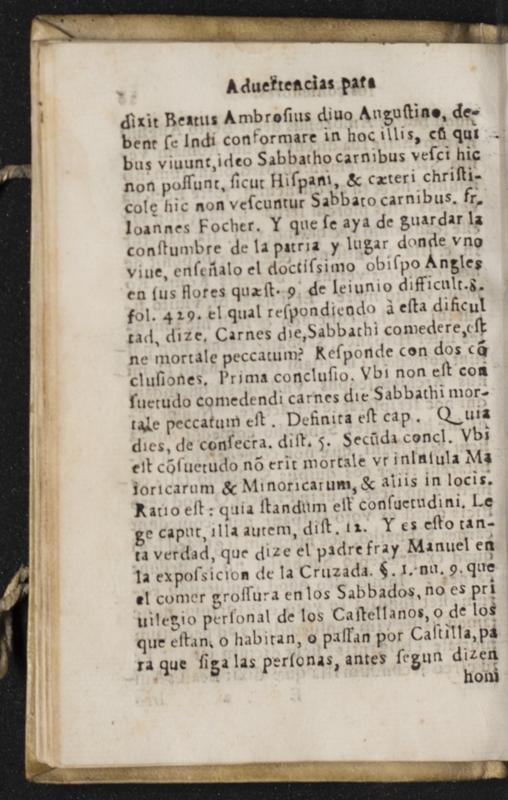 Aduertencias para
dixit Beatus Ambrosius diuo Augustino, de-
bent se Indi conformare in hoc illis, cũ qui
bus viuunt, ideo Sabbatho carnibus vesci hic
non possunt, sicut Hispani, & cæteri christi-
colę hic non vescuntur Sabbato carnibus. fr.
Ioannes Focher. Y que se aya de guardar la
constumbre de la patria y lugar donde vno
viue, enseñalo el doctissimo obispo Angles
en sus flores quæst. 9 de Ieiunio difficult. 8.
fol. 429. el qual respondiendo à esta dificul
tad, dize. Carnes die, Sabbathi comedere, est
ne mortale peccatum? Responde con dos cõ
clusiones. Prima conclusio. Vbi non est con
suetudo comedendi carnes die Sabbathi mor-
tale peccatum est. Definita est cap. Quia
dies, de consecra. dist. 5. Secũda concl. Vbi
est cõsuetudo nõ erit mortale vt in Insula Ma
ioricarum & Minoricarum, & aliis in locis.
Ratio est: quia standum est consuetudini. Le
ge caput, illa autem, dist. 12. Y es esto tan-
ta verdad, que dize el padre fray Manuel en
la expossicion de la Cruzada. §. 1. nu. 9. que
el comer grossura en los Sabbados, no es pri
uilegio personal de los Castellanos, o de los
que estan, o habitan, o passan por Castilla, pa
ra que siga las personas, antes segun dizen
honi